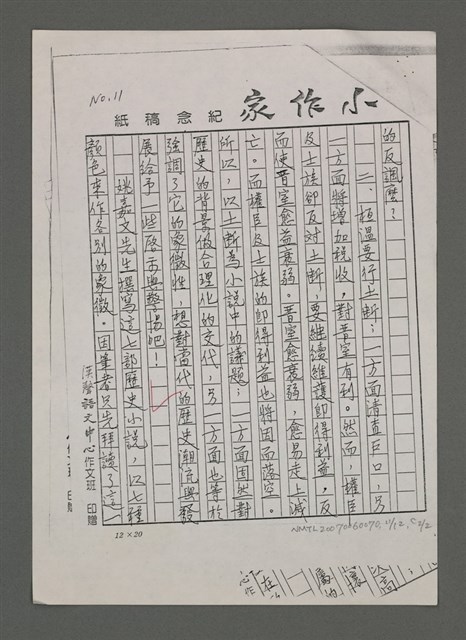 No.11
小作家 紀念稿紙
的反調麼？
二、桓溫要行土斷：一方面清查戶口，另
一方面將增加稅收，對晉室有利。然而，權臣
及士族卻反對土斷，要繼續維護即得利益，反
而使晉室愈益衰弱。晉室愈衰弱，愈易走上滅
亡。而權臣及士族的即得利益也將因而落空。
所以，以土斷為小說中的議題；一方面固然對
歷史的背景做合理化的交代，另一方面也等於
強調了它的象徵性，想對當代的歷史潮流與發
展給予一些啟示與警惕吧！
姚嘉文先生撰寫這七部歷史小說，以七種
顏色來作各別的象徵。因筆者只先拜讀了這一
漢聲語文中心作文班 印贈
12×20
NMTL20070060070, 11/12, C2/2